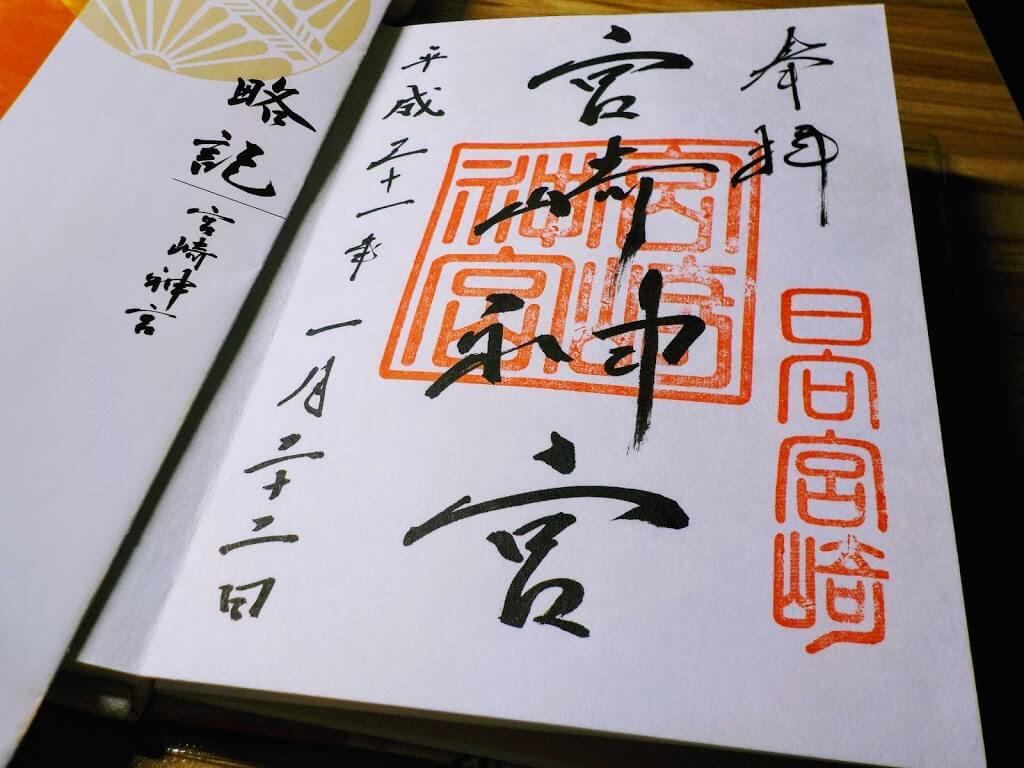 奉拝
日向宮崎
宮崎神宮
宮崎神宮
平成三十一年一月二十二日
略記
宮崎神宮